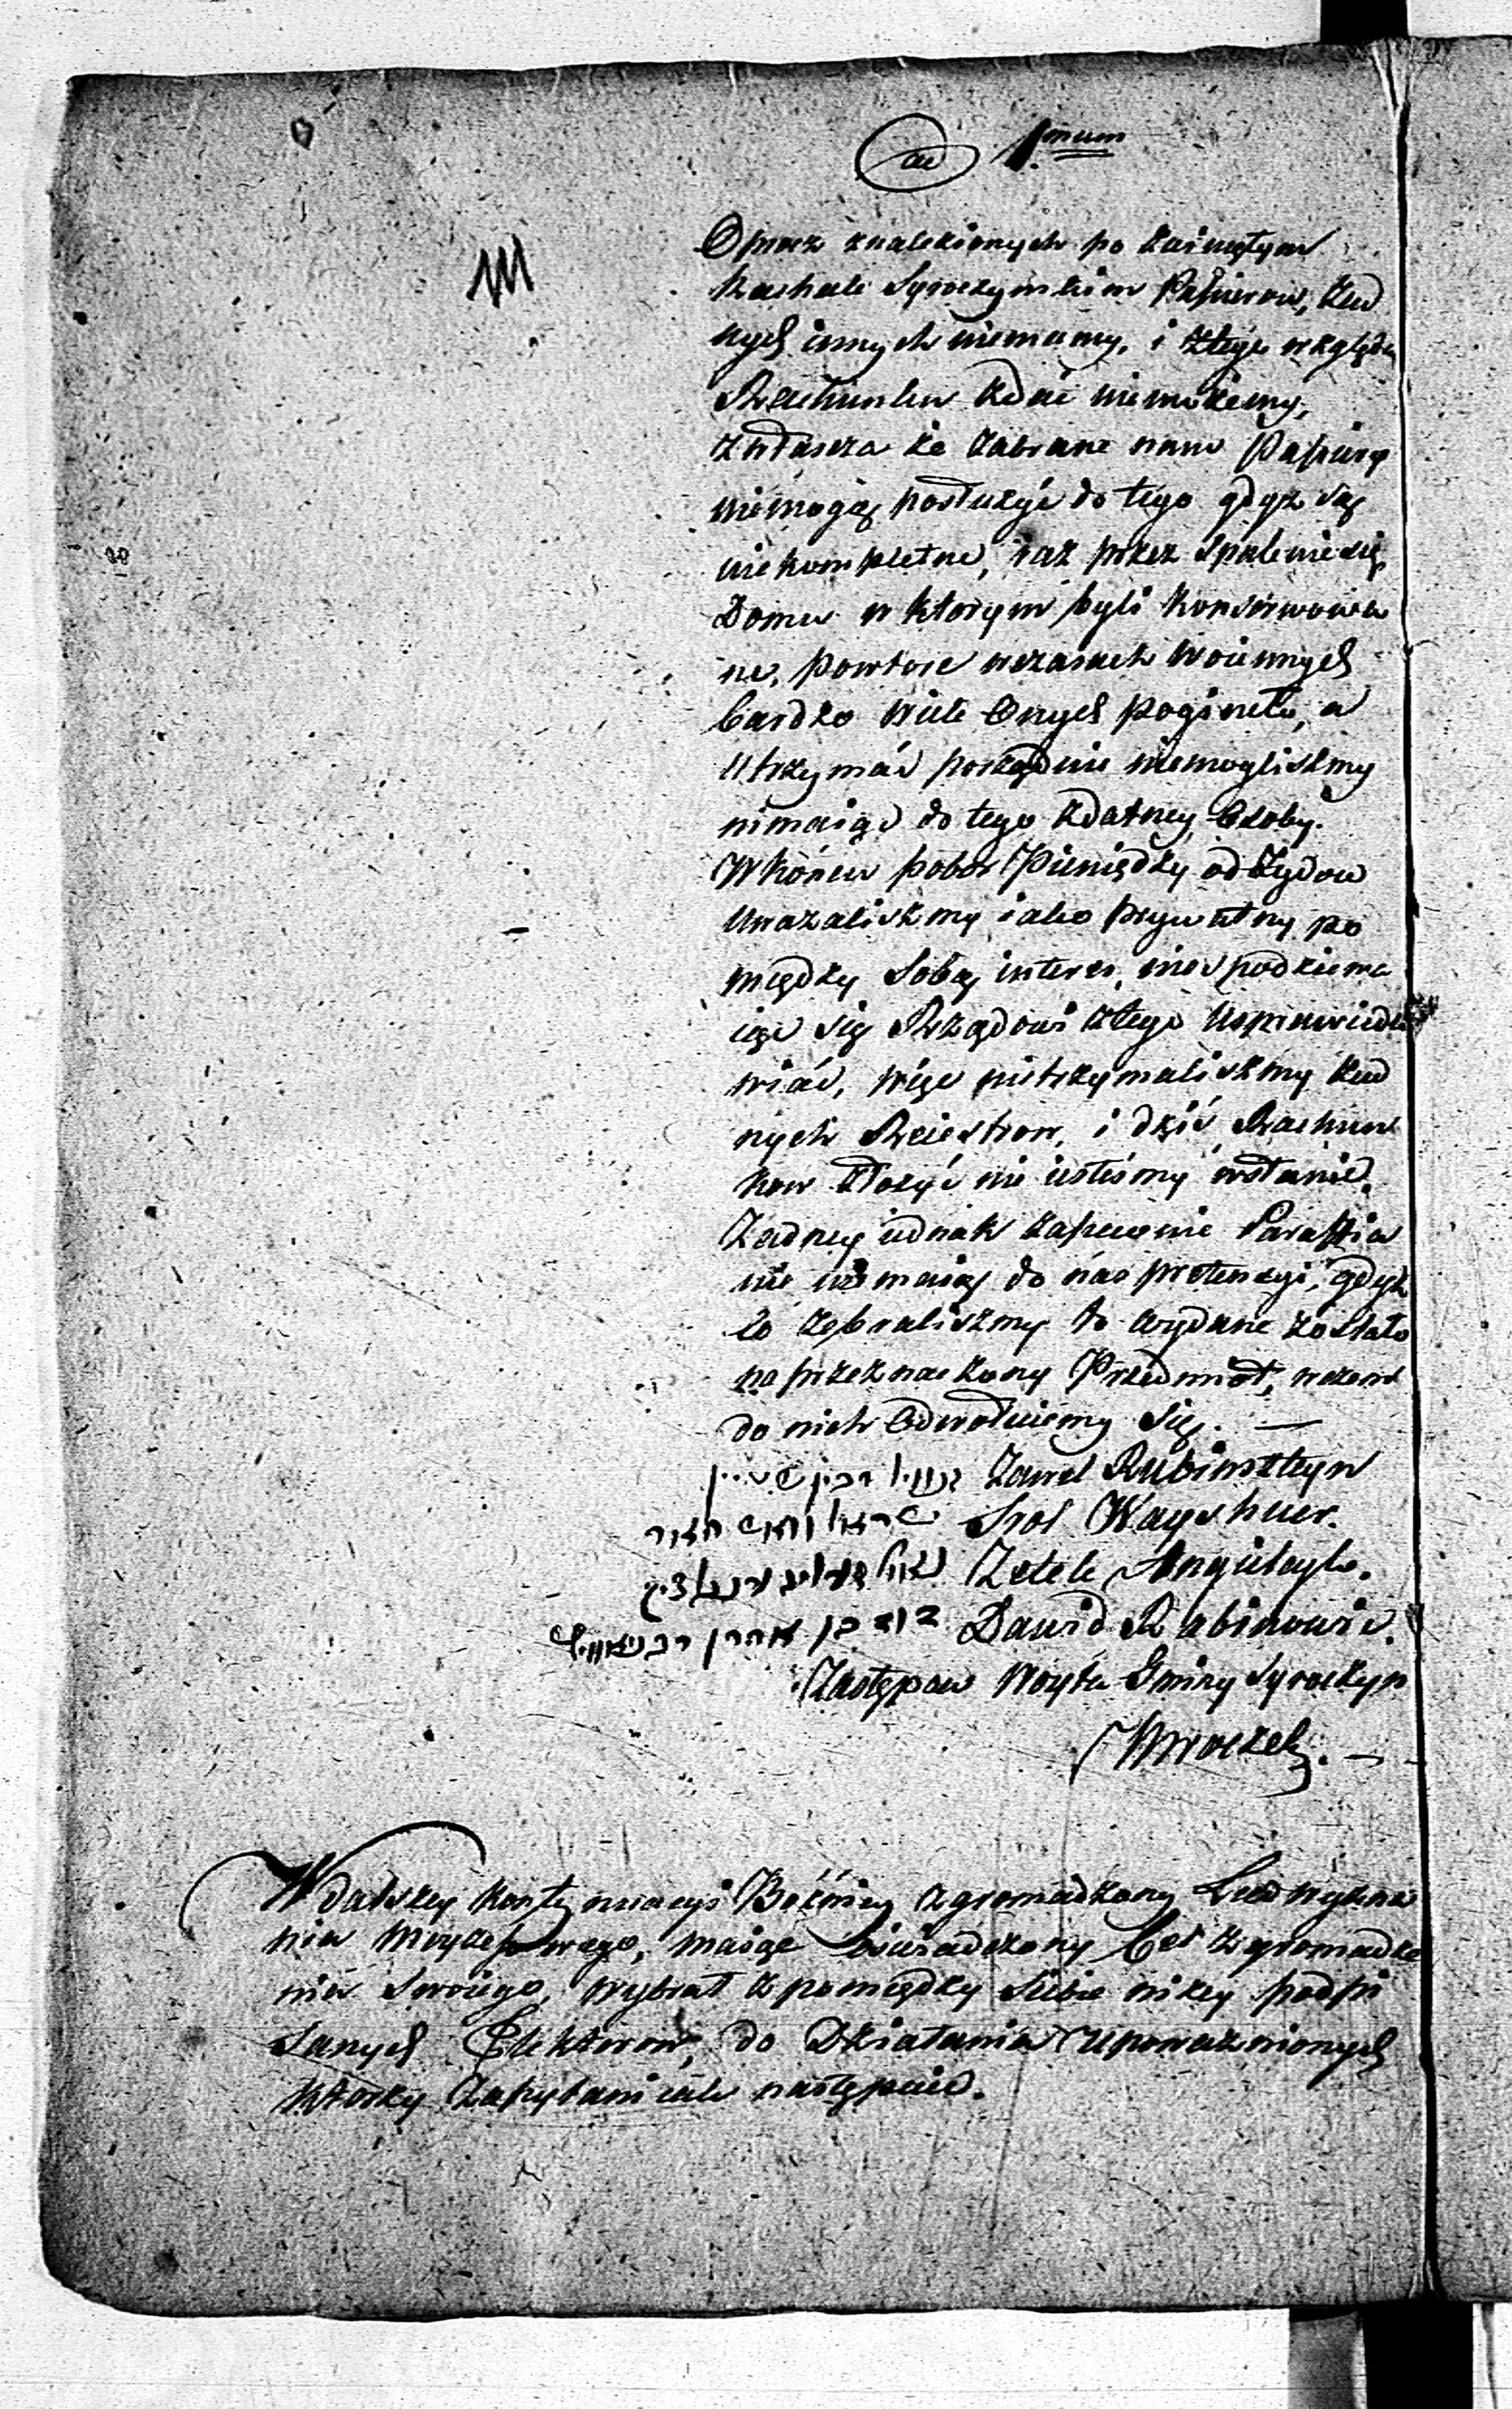 ad 1.mum
Oprocz znalezionych po zasiustym
Kachale Syroczynskim Papierow, żad
nych innych niemamy, i z tego względu
Rachunku zdać niemożemy,
zwłaszcza że zabrane nam Papiery
niemogą posłużyć do tego gdyż są
niekompletne, raz przez spalenie się
Domu w ktorym byli konserwowa
ne, powtore w czasach woiennych
bardzo wiele onych pogineło, a
utrzymać porządnie niemogliszmy
nimaiąc do tego zdatney Osoby.
W końcu pobor Pieniędzy od Zydow
uwazaliszmy iako prywatny po
między sobą interes, niespodziewa
iąc się Rządowi z tego usprawiedli
wiać, więc nietrzymaliszmy żad
nych Reiestrow, i dziś Rachun
kow złożyć nie iesteśmy wstanie.
Zadney iednak zapewnie Parafia
nie niemaią do nas pretensyi, gdyż
co zebraliszmy to wydane zostało
na przeznaczony Przedmiot, w czem
do nich odwołuiemy się. —
זעוויל רובינשטיין Zawel Rubinszteyn
שראל Srol Wayshuer.
Zelek
דוד בן אהרן ראבינאוויץ Dawid Rabinowic.
Zastępca Woyta Gminy Syroczyn
Mroczek. —
W dalszey kontynuacyi Bożnicy zgromadzony Lud wyzna
nia Moyżeszowego, maiąc oświadczony Cel zgromadze
nia swoiego, wybrał z pomiędzy siebie niżey podpi
sanych Elektorow, do Działania upoważnionych
ktorzy zapytani iak następuie.